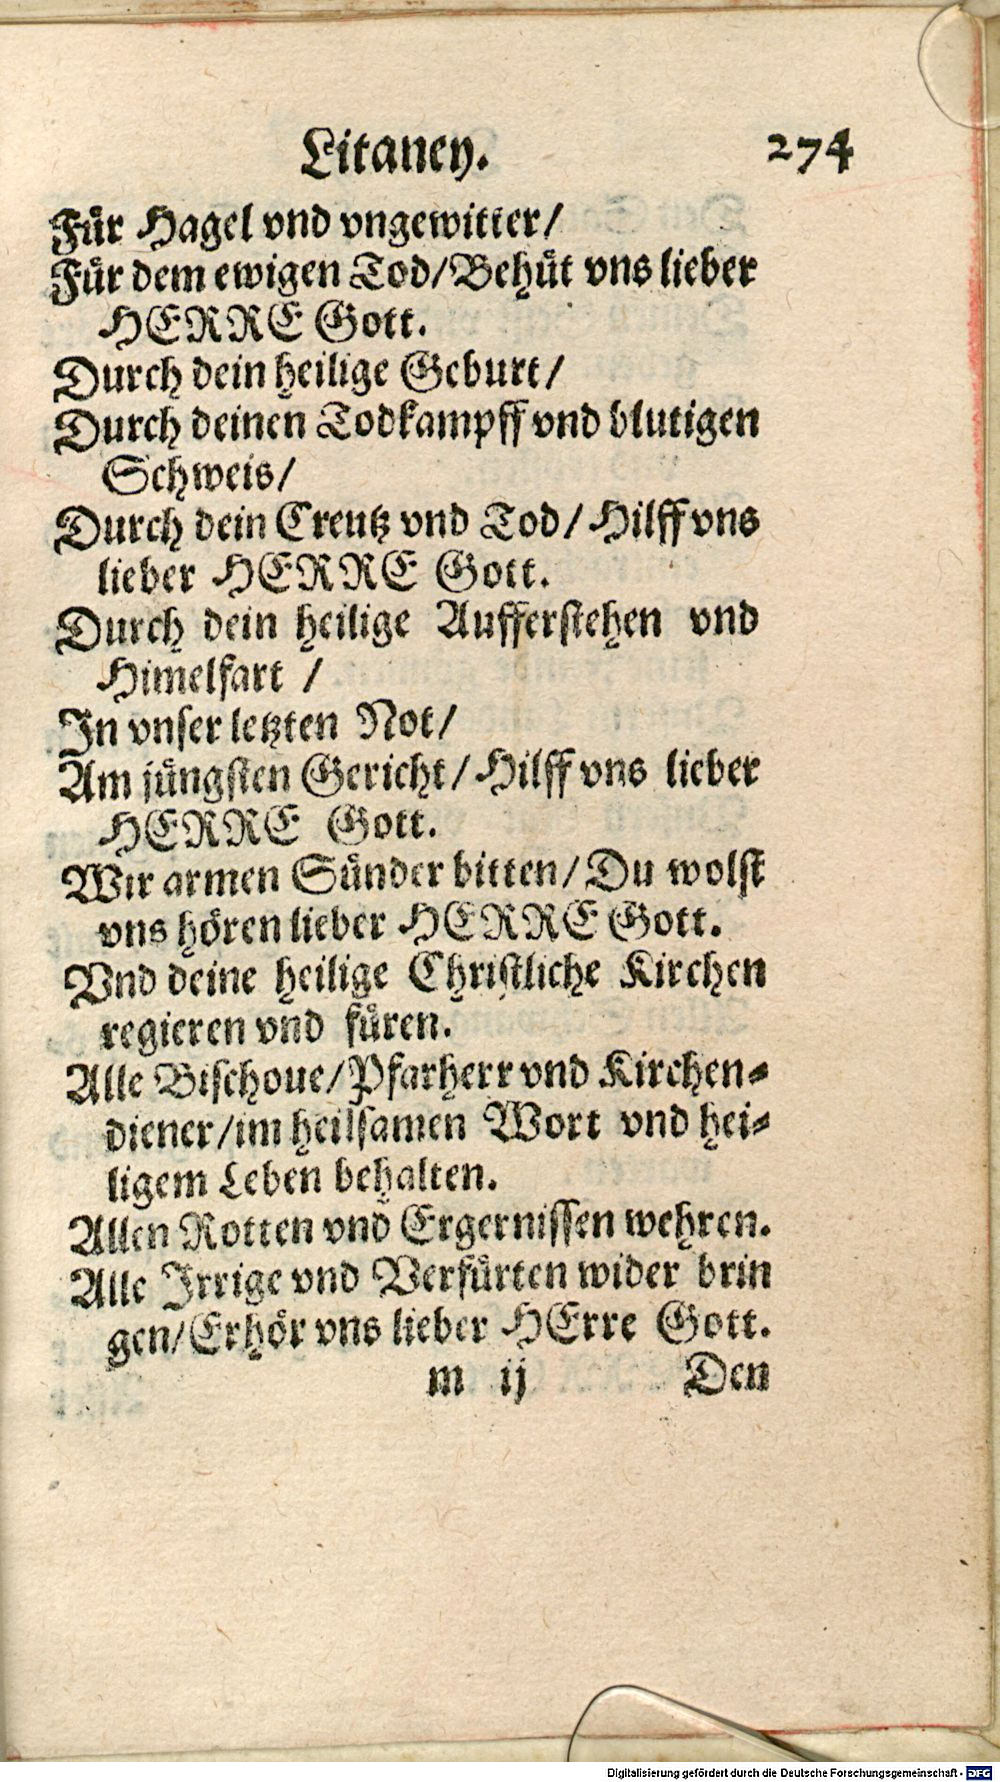 Litaney. 274
Für Hagel vnd vngewitter/
Für dem ewigen Tod/Behüt vns lieber
HERRE Gott.
Durch dein heilige Geburt/
Durch deinen Todkampff vnd blutigen
Schweis/
Durch dein Creutz vnd Tod/Hilff vns
lieber HERRE Gott.
Durch dein heilige Aufferstehen vnd
Himelfart /
In vnser letzten Not/
Am jüngsten Gericht/Hilff vns lieber
HERRE Gott.
Wir armen Sünder bitten/Du wolst
vns hören lieber HERRE Gott.
Vnd deine heilige Christliche Kirchen
regieren vnd füren.
Alle Bischoue/Pfarherr vnd Kirchen-
diener/im heilsamen Wort vnd hei-
ligem Leben behalten.
Allen Rotten vnd Ergernissen wehren.
Alle Irrige vnd Verfürten wider brin
gen/Erhör vns lieber HErre Gott.
m ij Den
Digitalisierung gefördert durch die Deutsche Forschungsgemeinschaft - DFG